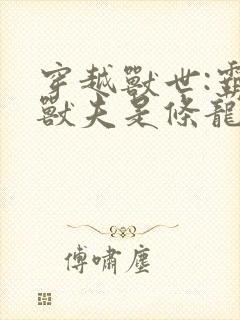 穿越獸世:霸
獸夫是條龍
傅嘯塵